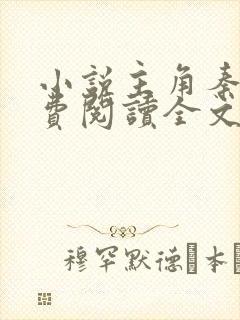 小說主角秦
費閱讀全文
穆罕默德·本